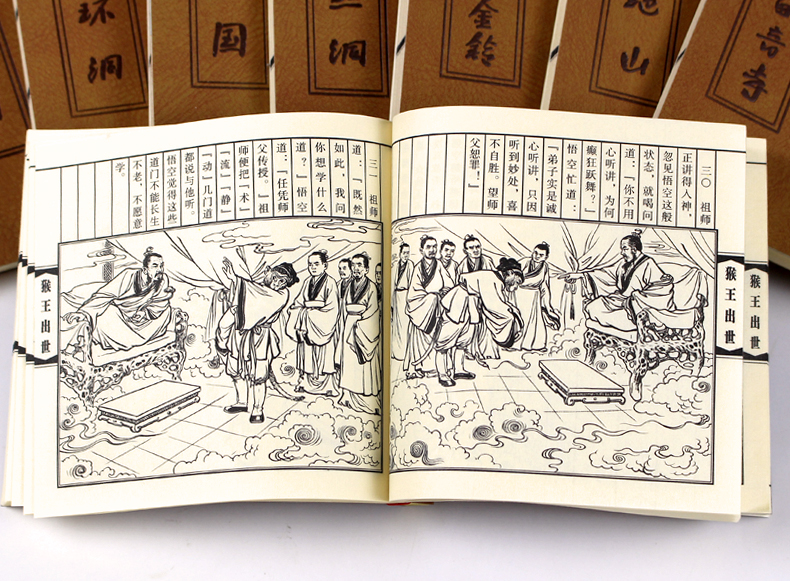 环洞
国
洞
金铃
山
音寺
猴王出世
猴王出世
三〇 祖师
正讲得入神，
忽见悟空这般
状态，就喝问
道：「你不用
心听讲，为何
癫狂跃舞？」
悟空忙道：
「弟子实是诚
心听讲，只因
听到妙处，喜
不自胜。望师
父恕罪！」
三一 祖师
道：「既然
如此，我问
你想学什么
道？」悟空
道：「任凭师
父传授。」祖
师便把「术」
「流」「静」
「动」几门道
都说与他听。
悟空觉得这些
道门不能长生
不老，不愿意
学。
猴王出世